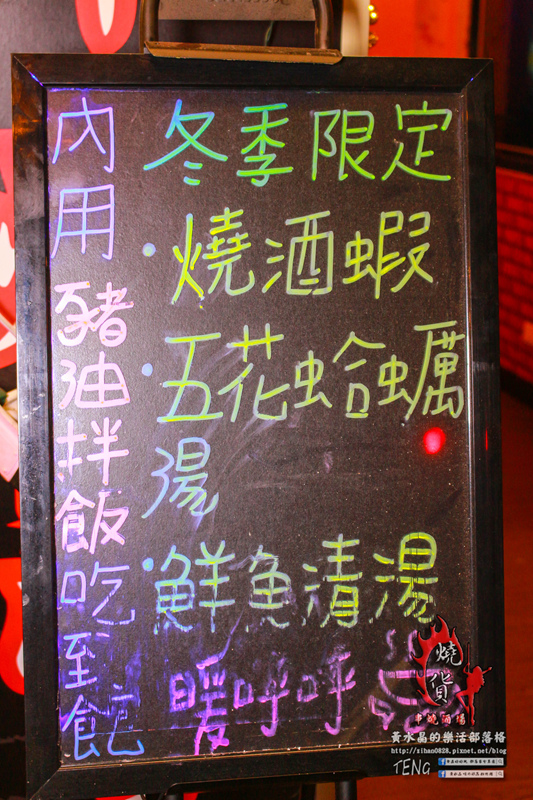 冬季限定
•燒酒蝦
•五花蛤蠣
湯
•鮮魚清湯
暖呼呼
內用豬油拌飯吃至飽
燒
貨
串燒酒場
黃水晶的樂活部落格
http://sihao0828.pixnet.net/blog
TENG